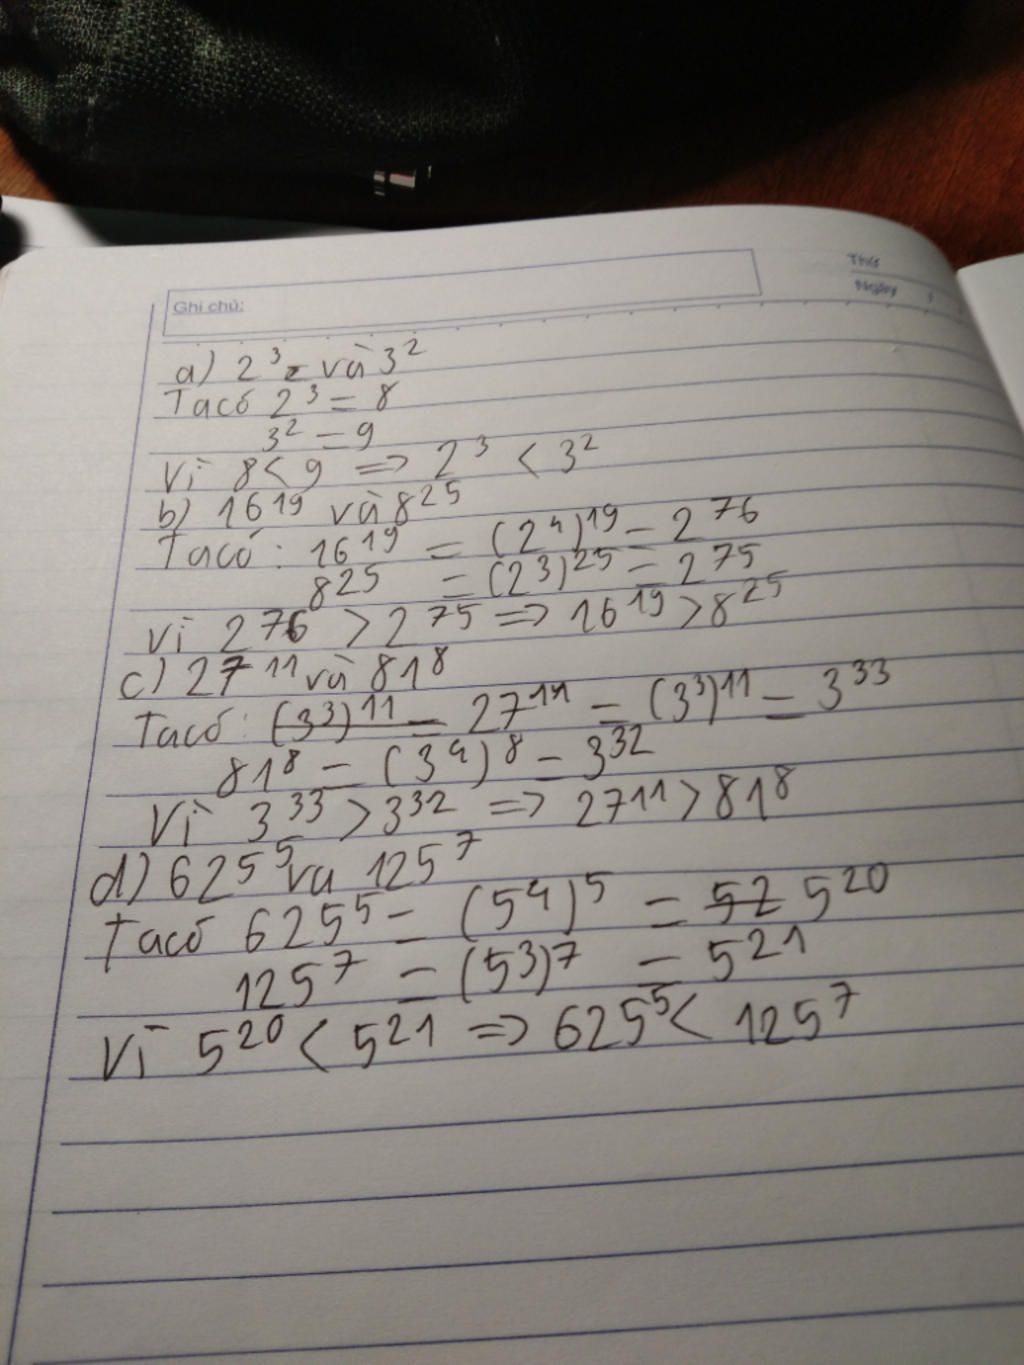 Thứ
Ngày
Ghi chú:
a) 2³ và 3²
Ta có 2³ = 8
3² = 9
Vì 8 < 9 => 2³ < 3²
b) 16¹⁹ và 8²⁵
Ta có: 16¹⁹ = (2⁴)¹⁹ = 2⁷⁶
8²⁵ = (2³)²⁵ = 2⁷⁵
Vì 2⁷⁶ > 2⁷⁵ => 16¹⁹ > 8²⁵
c) 27¹¹ và 81⁸
Ta có: (3³)¹¹ = 27¹¹ = (3³)¹¹ = 3³³
81⁸ = (3⁴)⁸ = 3³²
Vì 3³³ > 3³² => 27¹¹ > 81⁸
d) 625⁵ va 125⁷
Ta có 625⁵ = (5⁴)⁵ = 52 5²⁰
125⁷ = (5³)⁷ = 5²¹
Vì 5²⁰ < 5²¹ => 625⁵ < 125⁷